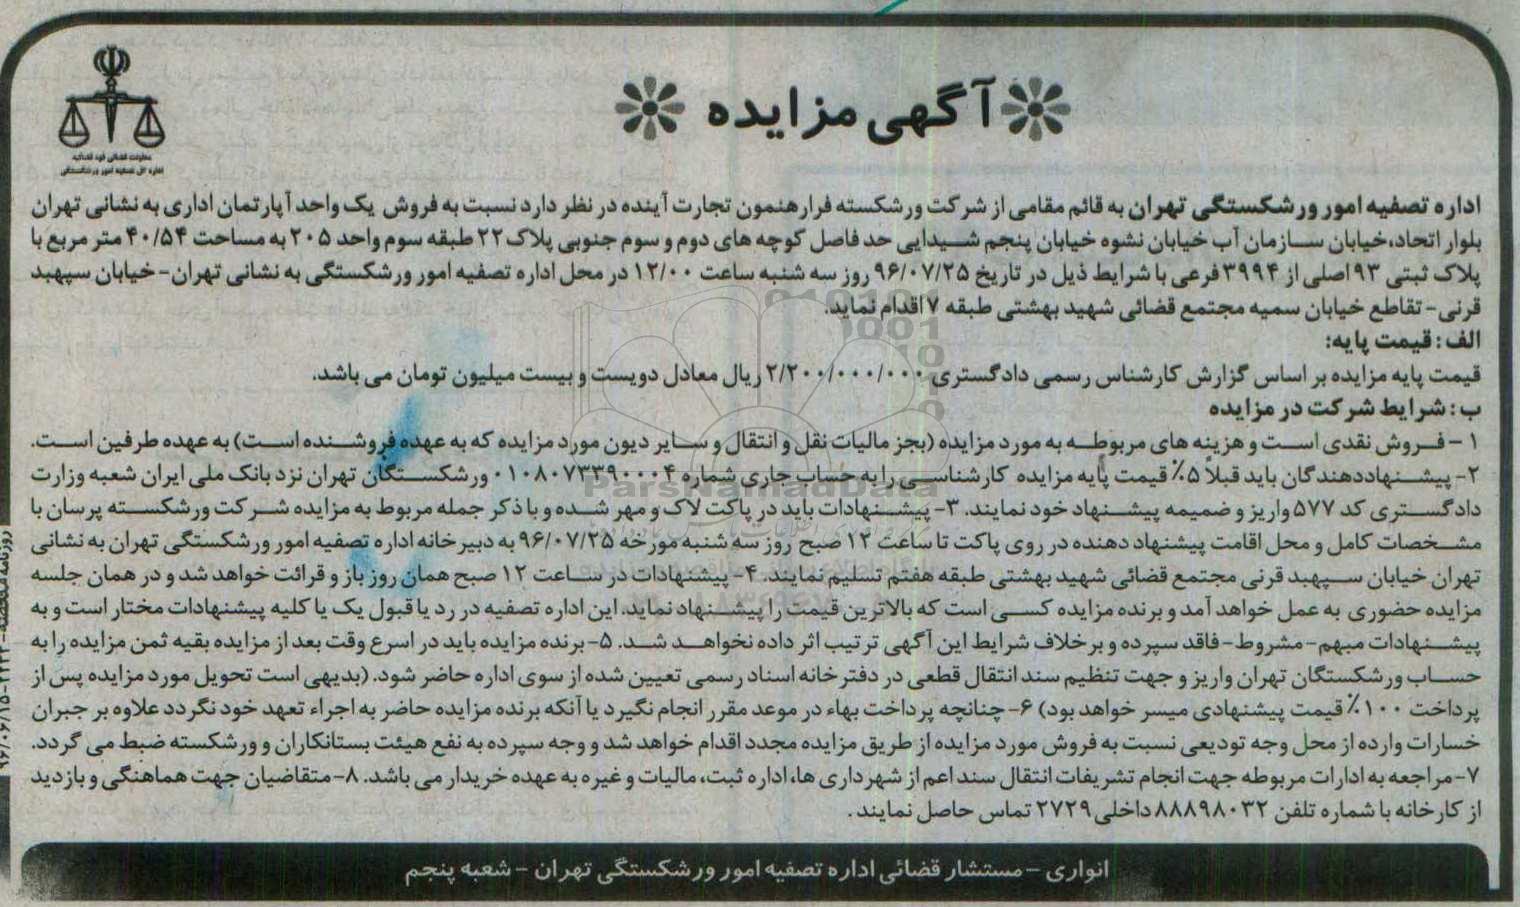 آگهی مزایده
معاونت قضائی قوه قضائیه
اداره کل تصفیه امور ورشکستگی
اداره تصفیه امور ورشکستگی تهران به قائم مقامی از شرکت ورشکسته فرارهنمون تجارت آینده در نظر دارد نسبت به فروش یک واحد آپارتمان اداری به نشانی تهران
بلوار اتحاد،خیابان سازمان آب خیابان نشوه خیابان پنجم شیدایی حد فاصل کوچه های دوم و سوم جنوبی پلاک ۲۲ طبقه سوم واحد ۲۰۵ به مساحت ۴۰/۵۴ متر مربع با
پلاک ثبتی ۹۳ اصلی از ۳۹۹۴ فرعی با شرایط ذیل در تاریخ ۹۶/۰۷/۲۵ روز سه شنبه ساعت ۱۲/۰۰ در محل اداره تصفیه امور ورشکستگی به نشانی تهران- خیابان سپهبد
قرنی- تقاطع خیابان سمیه مجتمع قضائی شهید بهشتی طبقه ۷ اقدام نماید.
الف: قیمت پایه:
قیمت پایه مزایده بر اساس گزارش کارشناس رسمی دادگستری ۲/۲۰۰/۰۰۰/۰۰۰ ریال معادل دویست و بیست میلیون تومان می باشد.
ب: شرایط شرکت در مزایده
۱ - فروش نقدی است و هزینه های مربوطه به مورد مزایده (بجز مالیات نقل و انتقال و سایر دیون مورد مزایده که به عهده فروشنده است) به عهده طرفین است.
۲- پیشنهاددهندگان باید قبلاً ۵٪ قیمت پایه مزایده کارشناسی را به حساب جاری شماره ۰۱۰۸۰۷۳۳۹۰۰۰۴ ورشکستگان تهران نزد بانک ملی ایران شعبه وزارت
دادگستری کد ۵۷۷ واریز و ضمیمه پیشنهاد خود نمایند. ۳- پیشنهادات باید در پاکت لاک و مهر شده و با ذکر جمله مربوط به مزایده شرکت ورشکسته پرسان با
مشخصات کامل و محل اقامت پیشنهاد دهنده در روی پاکت تا ساعت ۱۲ صبح روز سه شنبه مورخه ۹۶/۰۷/۲۵ به دبیرخانه اداره تصفیه امور ورشکستگی تهران به نشانی
تهران خیابان سپهبد قرنی مجتمع قضائی شهید بهشتی طبقه هفتم تسلیم نمایند. ۴- پیشنهادات در ساعت ۱۲ صبح همان روز باز و قرائت خواهد شد و در همان جلسه
مزایده حضوری به عمل خواهد آمد و برنده مزایده کسی است که بالاترین قیمت را پیشنهاد نماید. این اداره تصفیه در رد یا قبول یک یا کلیه پیشنهادات مختار است و به
پیشنهادات مبهم- مشروط- فاقد سپرده و برخلاف شرایط این آگهی ترتیب اثر داده نخواهد شد. ۵- برنده مزایده باید در اسرع وقت بعد از مزایده بقیه ثمن مزایده را به
حساب ورشکستگان تهران واریز و جهت تنظیم سند انتقال قطعی در دفترخانه اسناد رسمی تعیین شده از سوی اداره حاضر شود. (بدیهی است تحویل مورد مزایده پس از
پرداخت ۱۰۰٪ قیمت پیشنهادی میسر خواهد بود) ۶- چنانچه پرداخت بهاء در موعد مقرر انجام نگیرد یا آنکه برنده مزایده حاضر به اجراء تعهد خود نگردد علاوه بر جبران
خسارات وارده از محل وجه تودیعی نسبت به فروش مورد مزایده از طریق مزایده مجدد اقدام خواهد شد و وجه سپرده به نفع هیئت بستانکاران و ورشکسته ضبط می گردد.
۷- مراجعه به ادارات مربوطه جهت انجام تشریفات انتقال سند اعم از شهرداری ها، اداره ثبت، مالیات و غیره به عهده خریدار می باشد. ۸- متقاضیان جهت هماهنگی و بازدید
از کارخانه با شماره تلفن ۸۸۸۹۸۰۳۲ داخلی ۲۷۲۹ تماس حاصل نمایند.
انواری - مستشار قضائی اداره تصفیه امور ورشکستگی تهران - شعبه پنجم
ParsNamadData